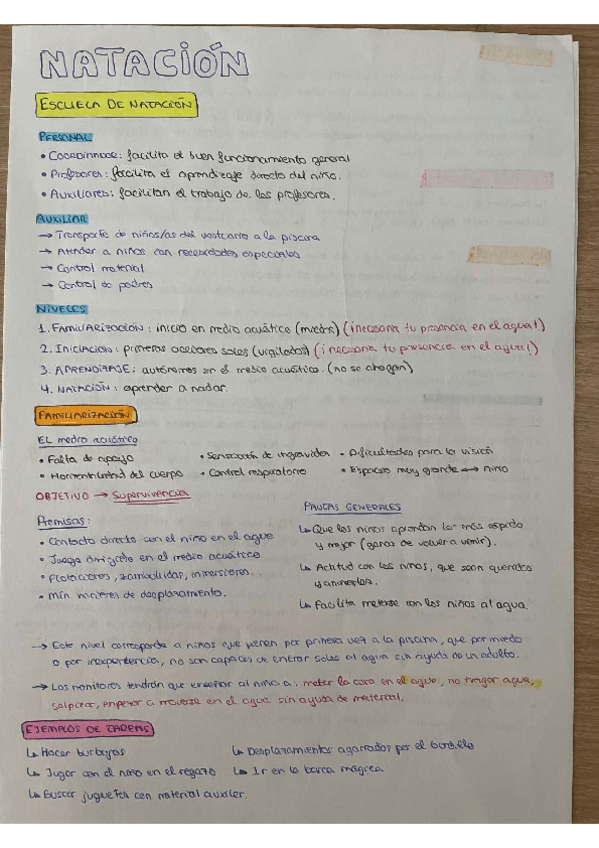 NATACIÓN
ESCUELA DE NATACIÓN
PERSONAL
• Coordinador: facilita el buen funcionamiento general
• Profesores: facilita el aprendizaje directo del niño.
• Auxiliares: facilitan el trabajo de los profesores.
AUXILIAR
→ Transporte de niños/as del vestuario a la piscina
→ Atender a niños con necesidades especiales
→ Control material
→ Control de padres
NIVELES
1. FAMILIARIZACIÓN: inicio en medio acuático (miedo) (¡necesaria tu presencia en el agua!)
2. INICIACION: primeras acciones solos (vigilados) (¡necesaria tu presencia en el agua!)
3. APRENDIZAJE: autónomos en el medio acuático. (no se ahogan)
4. NATACIÓN: aprender a nadar.
FAMILIARIZACIÓN
EL medio acuático
• Falta de apoyo • Sensación de ingravidez • Dificultades para la visión
• Horizontalidad del cuerpo • Control respiratorio • Espacio muy grande → niño
OBJETIVO → Supervivencia
Premisas:
• Contacto directo con el niño en el agua
• Juego dirigido en el medio acuático
• Flotaciones, zambullidas, inmersiones...
• Mín maneras de desplazamiento.
PAUTAS GENERALES
↳ Que los niños aprendan lo más rápido
y mejor (ganas de volver a venir).
↳ Actitud con los niños, que sean queridos
y animarles.
↳ Facilita meterse con los niños al agua.
→ Este nivel corresponde a niños que vienen por primera vez a la piscina, que por miedo
o por inexperiencia, no son capaces de entrar solos al agua sin ayuda de un adulto.
→ Los monitores tendrán que enseñar al niño a: meter la cara en el agua, no tragar agua,
salpicar, empezar a moverse en el agua sin ayuda de material.
EJEMPLOS DE TAREAS
↳ Hacer burbujas ↳ Desplazamientos agarrados por el bordillo
↳ Jugar con el niño en el regazo ↳ Ir en la barca mágica
↳ Buscar juguetes con material auxiliar.